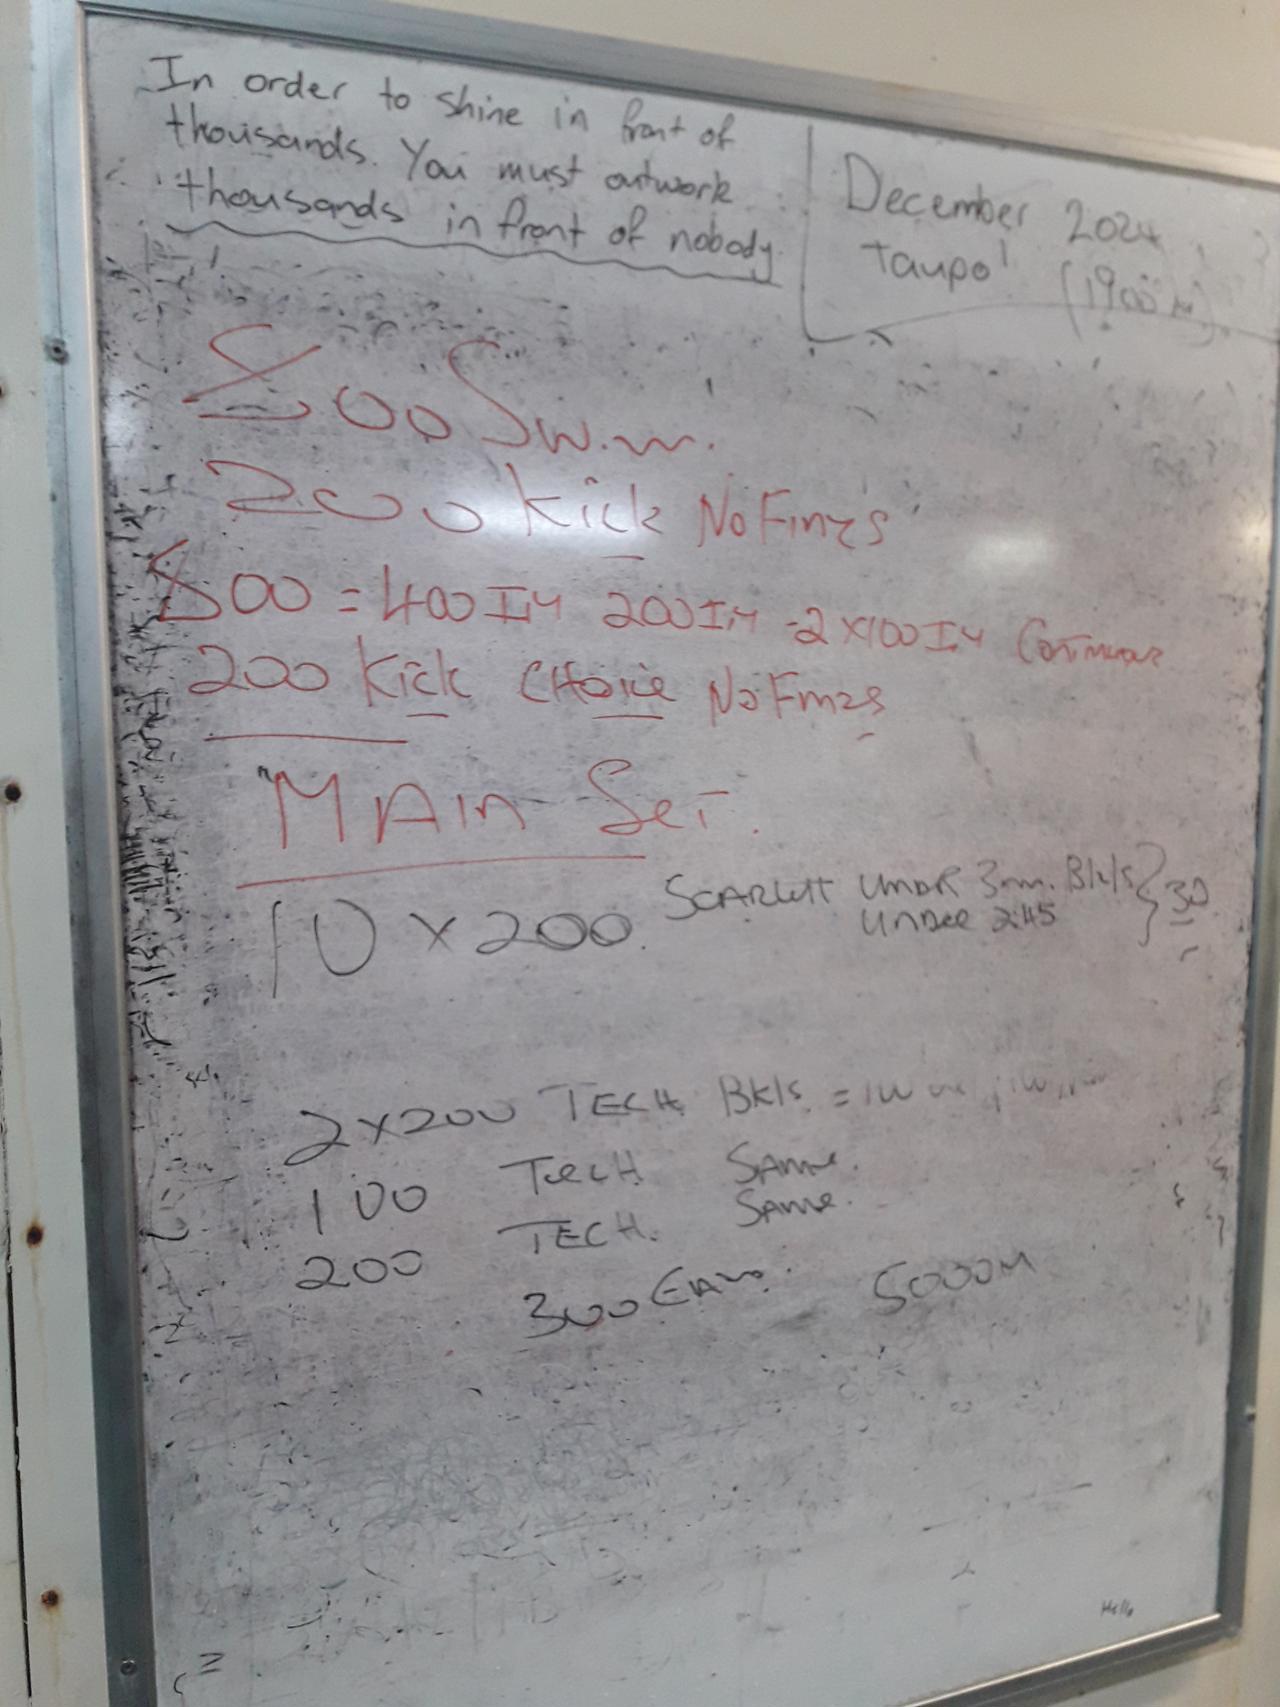 In order to shine in front of
thousands. You must outwork
thousands in front of nobody.
December 2024
Taupo
(1900m)
800 Swim.
200 Kick No Fines
800 = 400 IM 200 IM - 2 x 100 IM Continuous
200 Kick CHoice No Fines
MAin Set.
10 x 200.
SCARLett UNDER 3mm. Bk/s } 30
UNDER 2:45
2 x 200 TECH Bk/s =
100 TecH SAme.
200 TECH. SAme.
300 Easy. 5000M
Hello